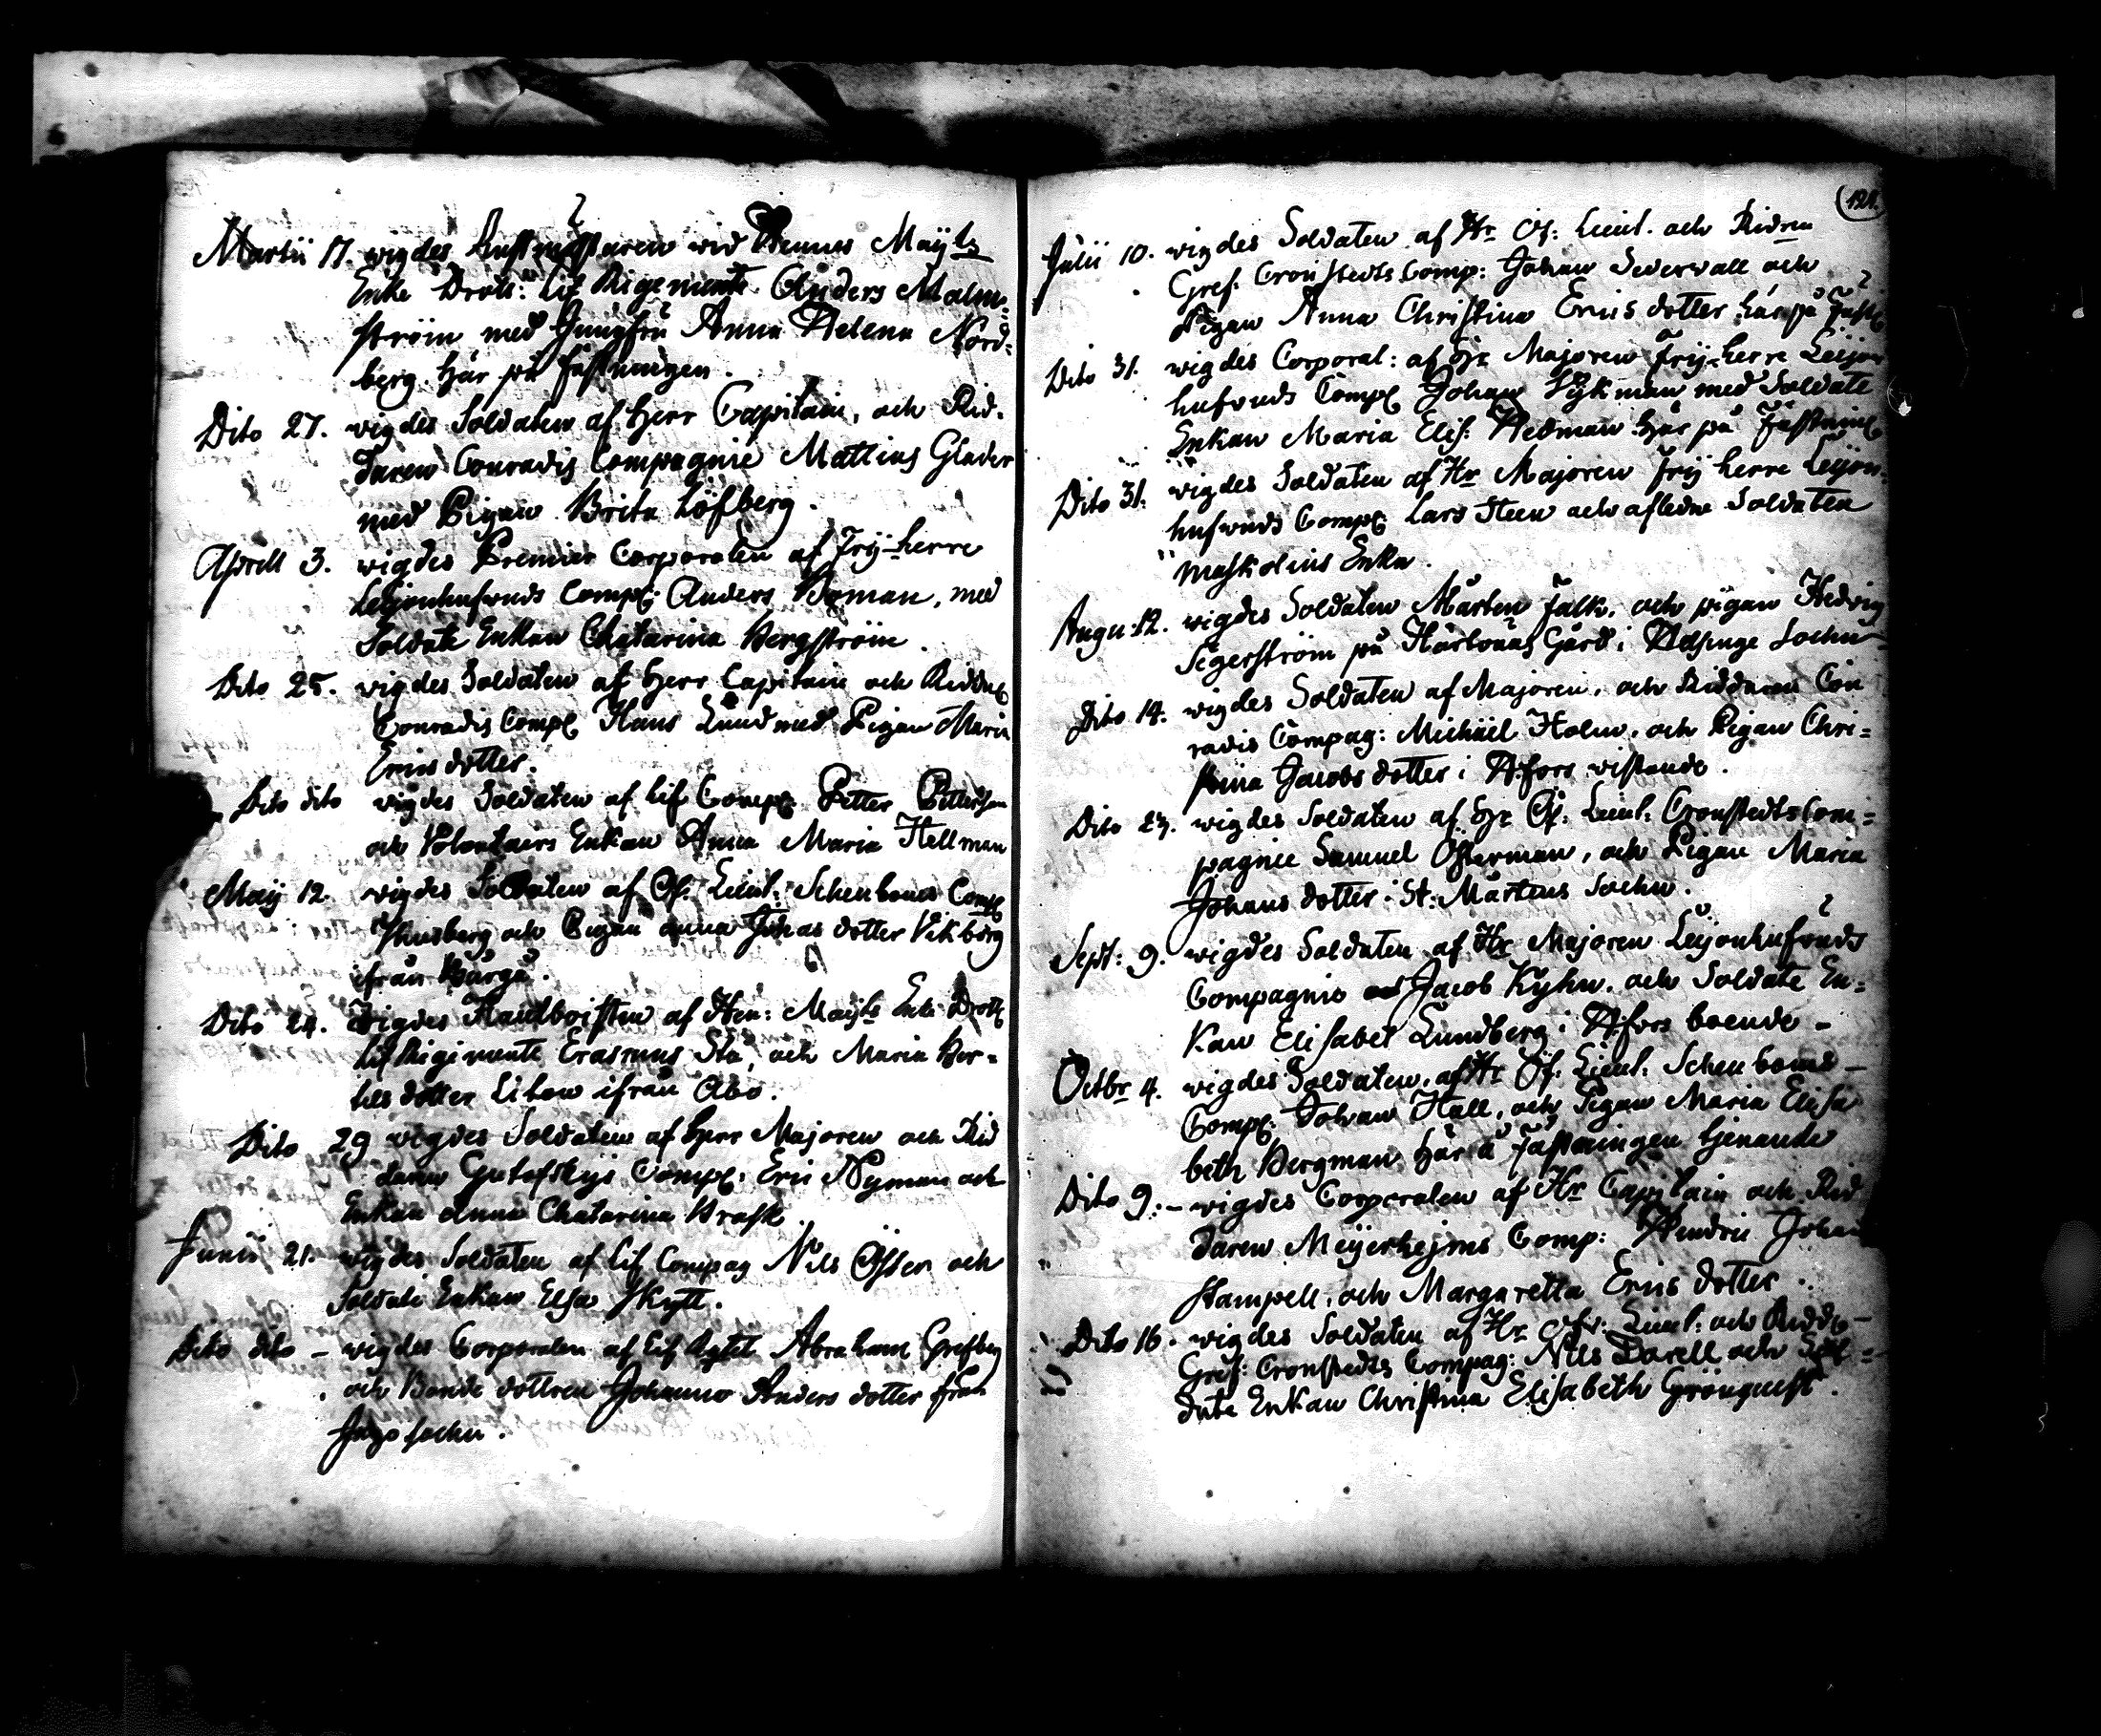 Martii 17. wigdes Rustmästaren wid Hennes Maij:ts
Enke Drott: Lif Regemente Anders Malm-
ström med Jungfru Anna Helena Nord-
berg här på fästningen.
Dito 27. wigdes Soldaten af Herr Capitain, och Rid-
daren Conradis Compagnie Mattias Glader
med Pigan Brita Löfberg.
Aprill 3. wigdes Premier Corporalen af Frij-herre
Leijonhufwuds Comp: Anders Boman, med
Soldate Enkan Chatarina Bergström.
Dito 25. wigdes Soldaten af Herr Capitain och Ridd
Conradis Comp: Hans Lund med Pigan Maria
Erics dotter.
Dito dito wigdes Soldaten af Lif Comp: Petter Petterson
och Volontairs Enkan Anna Maria Hellman
Maij 12. wigdes Soldaten af Öf: Lieut: Schenboms Comp:
och Pigan Anna Johas dotter Vikborg
ifrån Borgå.
Dito 24. wigdes Hautboisten af Hen: Maij:ts Enke Drott:
Lif Regimente Erasmus Sta, och Maria Ber-
tils dotter Litow ifrån Åbo.
Dito 29 wigdes Soldaten af Herr Majoren och Rid
daren Gutofskijs Comp: Eric Nyman och
Enkan Anna Chatarina Brask
Junii 21. wigdes Soldaten af Lif Compag Nils Öster och
Soldate Enkan Elsa Skytt.
Dito dito – wigdes Corporalen af Lif Rgtet Abraham Grefberg
och Bonde dottren Johanna Anders dotter från
sochn.
(121.)
Julii 10. wigdes Soldaten af Hr Öf: Lieut. och Ridren
Gref. Cronstedts Comp: Johan Sederwall och
Pigan Anna Christina Erics dotter här på Fäst
Dito 31. wigdes Corporal: af Hr Majoren Frij-herre Leijon
hufwuds Comp: Johan Wijkman med Soldate
Enkan Maria Elis. Hedman här på Fästning
Dito 31. wigdes Soldaten af Hr Majoren Frij herre Leijon-
hufwuds Comp: Lars Steen och afledne Soldaten
Enka.
Augu 12. wigdes Soldaten Mårten Falk, och pigan Hedvig
Segerström på Gård i Helsinge Sochn
Dito 14. wigdes Soldaten af Majoren, och Riddaren Con
radis Compag: Michäel Holm, och Pigan Chri-
stina Jacobs dotter i H:fors wistande.
Dito 23. wigdes Soldaten af Hr Öf: Lieut: Cronstedts Com-
pagnie Samuel Österman, och Pigan Maria
Johans dotter i St: Mårtens Sochn.
Sept: 9. wigdes Soldaten af Hr Majoren Leijonhufwuds
Compagnie Jacob Kyhn, och Soldate En-
kan Elisabet Lundberg i H:fors boende –
Octbr 4. wigdes Soldaten, af Hr Öf: Lieut. Schenboms –
Comp: Johan Hall, och Pigan Maria Elisa
beth Bergman här å fästningen tjenande
Dito 9. – wigdes Corporalen af Hr Capitain och Rid
daren Meijerhejms Comp: Hendric Johan
Stampell, och Margaretta Erics dotter.
Dito 16. wigdes Soldaten af Hr Öfr: Lieut: och Ridd –
Gref: Cronstedts Compag: Nils Dorell och Sol-
date Enkan Christina Elisabeth Grönquist.